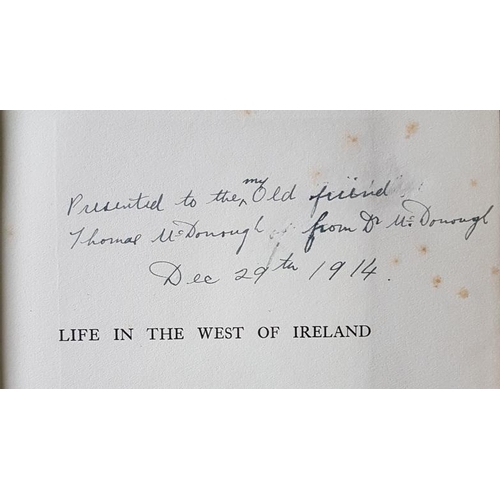 Presented to the my Old friend
Thomas McDonough from Dr McDonough
Dec 29th 1914.
LIFE IN THE WEST OF IRELAND